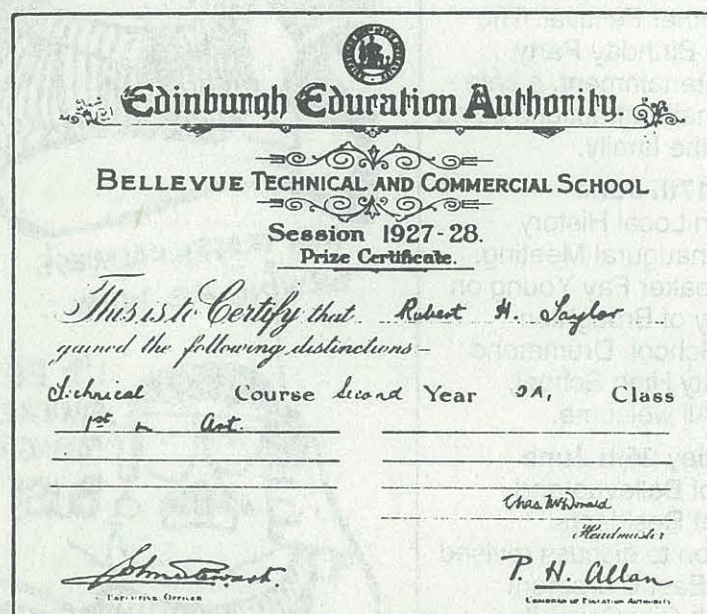 Edinburgh Education Authority
BELLEVUE TECHNICAL AND COMMERCIAL SCHOOL
Session 1927-28.
Prize Certificate.
This is to Certify that Robert H. Taylor
gained the following distinctions-
Technical Course Second Year 2A, Class
1st in Art.
Chas McDonald
Headmaster
P. H. Allan
EXECUTIVE OFFICER
CHAIRMAN OF EDUCATION AUTHORITY